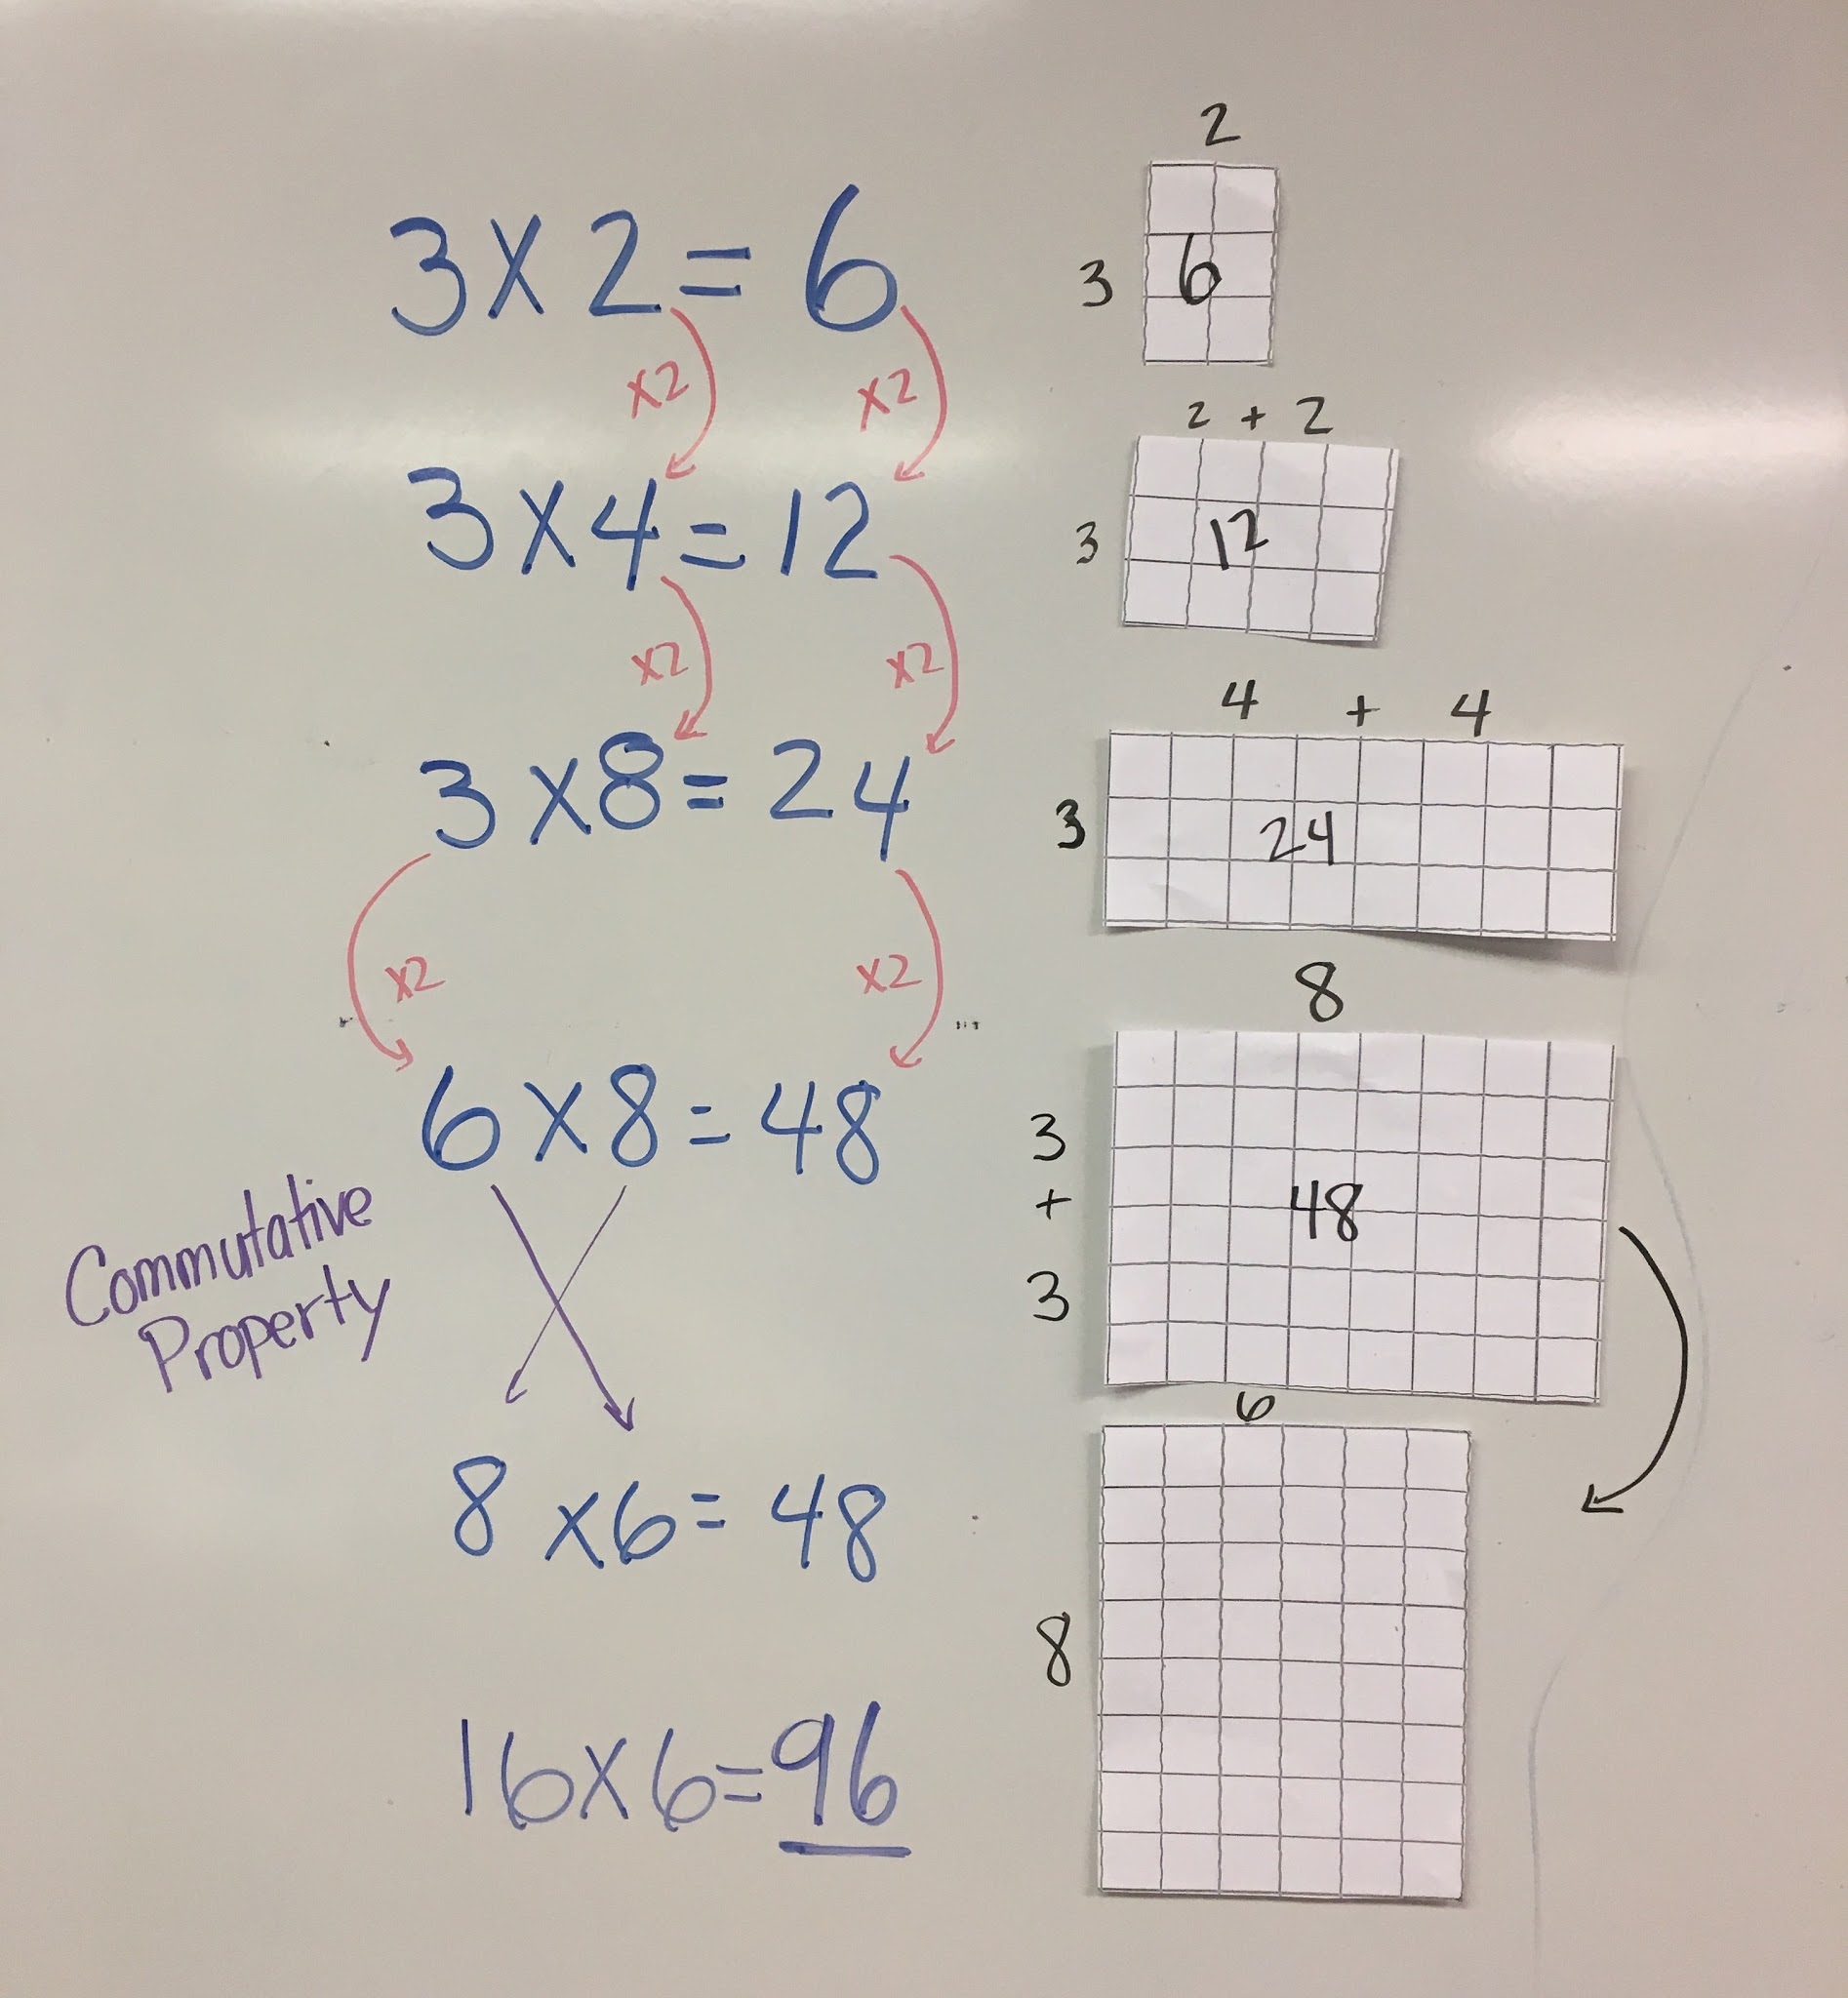 3 x 2 = 6
x2 x2
3 x 4 = 12
x2 x2
3 x 8 = 24
x2 x2
6 x 8 = 48
Commutative
Property
8 x 6 = 48
16 x 6 = 96
2
3
6
2 + 2
3
12
4 + 4
3
24
8
3
+
3
48
6
8